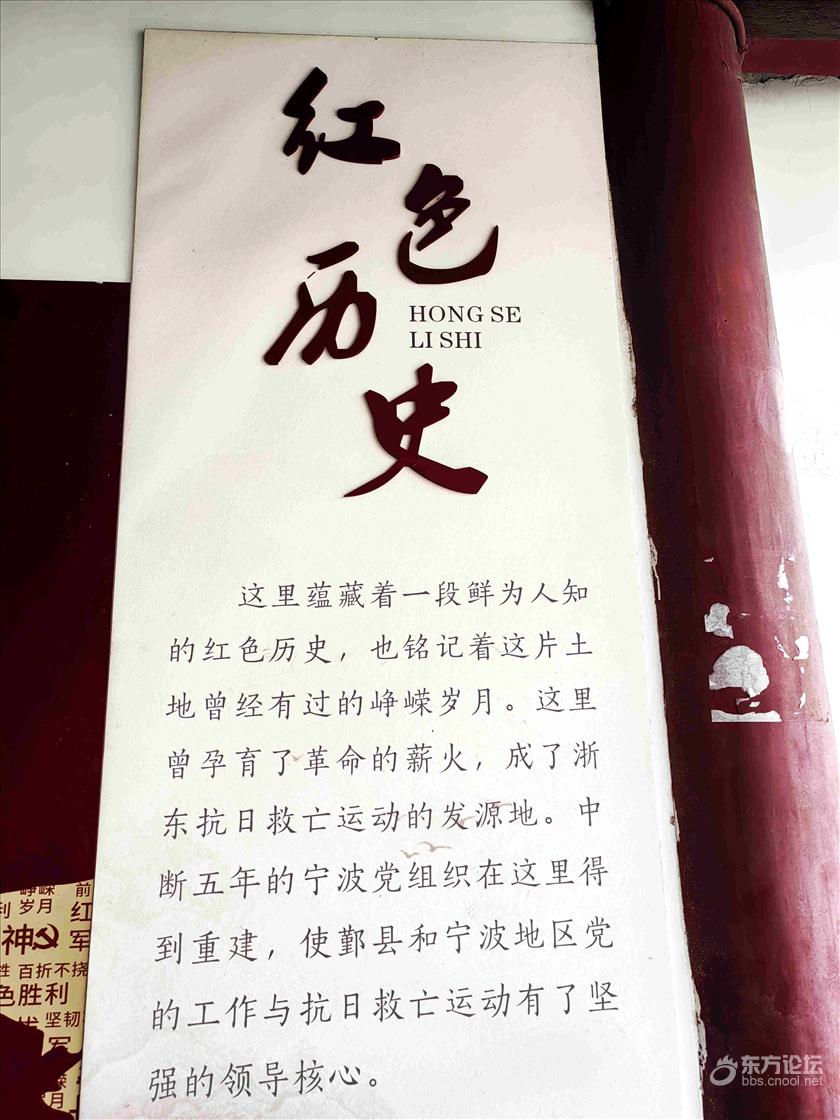 红色历史
HONG SE
LI SHI
这里蕴藏着一段鲜为人知
的红色历史，也铭记着这片土
地曾经有过的峥嵘岁月。这里
曾孕育了革命的薪火，成了浙
东抗日救亡运动的发源地。中
断五年的宁波党组织在这里得
到重建，使鄞县和宁波地区党
的工作与抗日救亡运动有了坚
强的领导核心。
峥嵘 前
利 岁月 红
神 军
胜 百折不挠
色胜利
坚韧
军
嵘
岁月
东方论坛
bbs.cnool.net